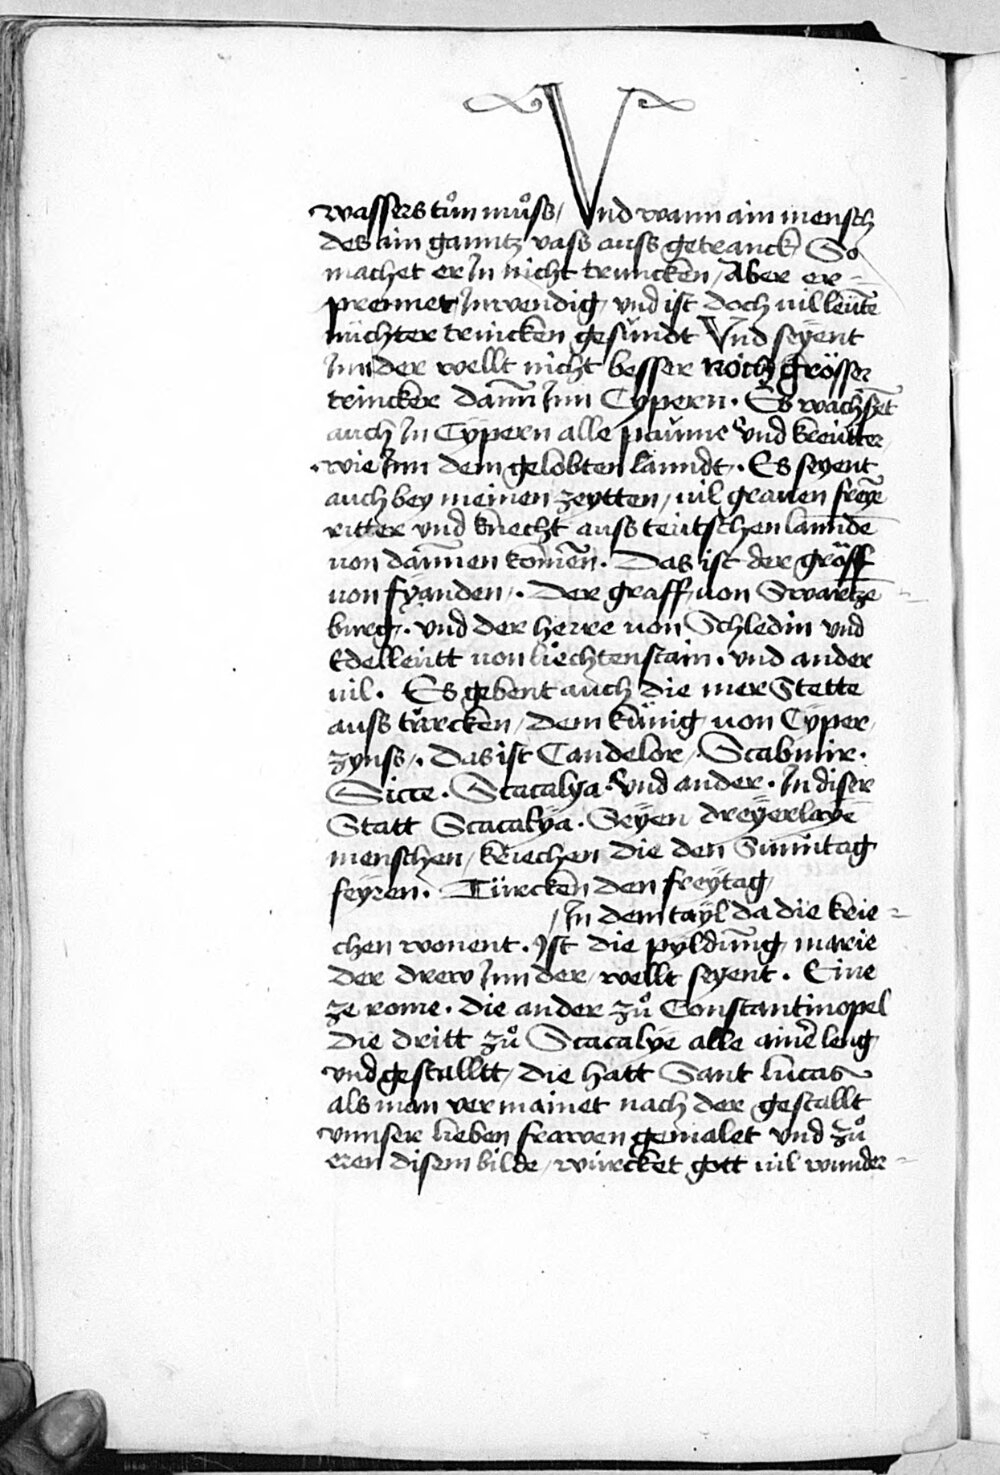 wassers tůn můss / Vnd wann ain mensch
des ain ganntz vass auss getranck So
machet er In nicht truncken / Aber er =
prennet Inwendig / vnd ist doch uil leute
nüchter trincken gesundt Vnd seyent
Inn der wellt nicht besser noch grösser
trincker dann Inn Cypern · Es wachset
auch In Cÿpern alle paume vnd kreutter
· wie Inn dem gelobten lanndt · Es seyent
auch bey meinen zeytten / uil grauen freye
ritter vnd knecht auss teutschen lannde
uon dannen komen · Das ist der gräff
uon fyanden / · Der graff uon Swartze =
burg / · vnd der herre uon Schledin vnd
Edelleutt uon liechtenstain · vnd ander
uil · Es gebent auch die mer Stette
auss türcken / dem künig uon Cÿper
zynss / · das ist Candelor / · Scabmir ·
Sicte · Scacalya · vnd ander · In diser
Statt Scacalÿa · Seyen dreÿerlaye
menschen / kriechen die den Sunntag
feÿren · Türcken den freÿtag /
/ In dem tayl da die krie =
chen wonent · Ist die pyldung marie
der drew Inn der wellt seyent · Eine
ze rome · die ander zů Constantinopel
die dritt zů Scacalye alle ainer leng
vnd gestalltt / die hatt Sant lucas
als man vermainet nach der gestallt
vnnser lieben frawen gemalet vnd zů
eren disem bilde / würcket gott uil wunder =